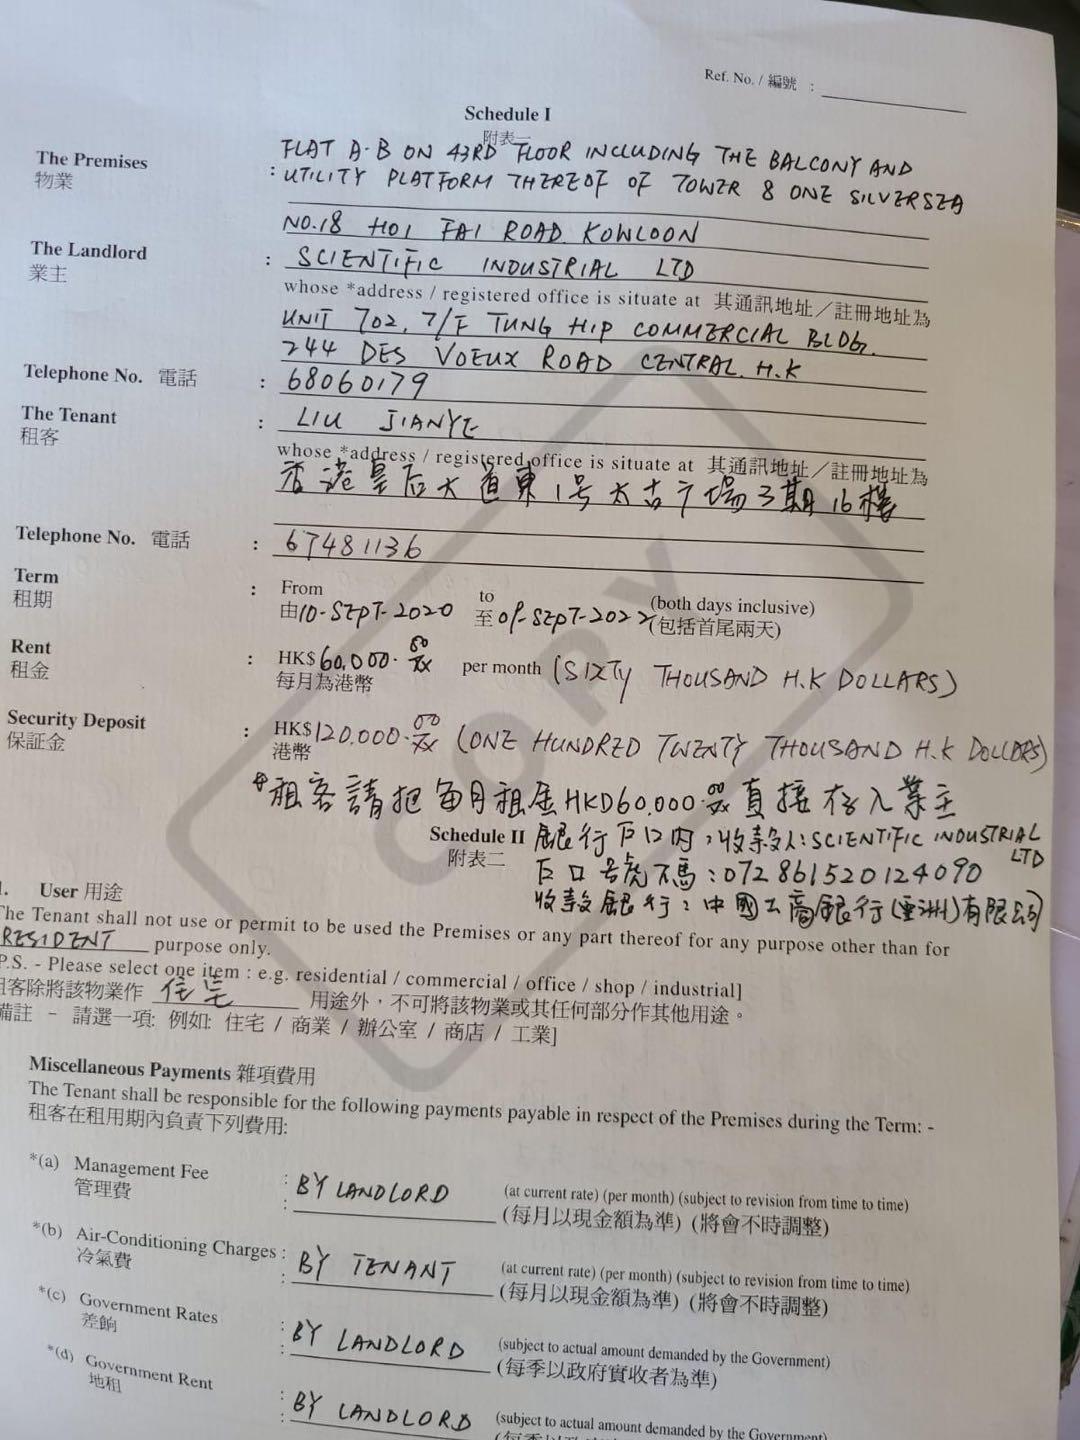 Ref. No. / 編號 :
Schedule I
附表一
The Premises
物業
: FLAT A-B ON 43RD FLOOR INCLUDING THE BALCONY AND
UTILITY PLATFORM THEREOF OF TOWER 8 ONE SILVERSEA
NO.18 HOI FAI ROAD. KOWLOON
The Landlord
業主
: SCIENTIFIC INDUSTRIAL LTD
whose *address / registered office is situate at 其通訊地址／註冊地址為
UNIT 702, 7/F TUNG HIP COMMERCIAL BLDG.
244 DES VOEUX ROAD CENTRAL. H.K
Telephone No. 電話 : 68060179
The Tenant
租客
: LIU JIANYE
whose *address / registered office is situate at 其通訊地址／註冊地址為
香港皇后大道東1号太古廣場3期16樓
Telephone No. 電話 : 67481136
Term
租期
: From to (both days inclusive)
由10-SEPT-2020 至 09-SEPT-2022 (包括首尾兩天)
Rent
租金
: HK$60,000.00/xx per month (SIXTY THOUSAND H.K DOLLARS)
每月為港幣
Security Deposit
保証金
: HK$120,000.00/xx (ONE HUNDRED TWENTY THOUSAND H.K DOLLARS)
港幣
*租客請把每月租金HKD60,000.00/xx直接存入業主
銀行戶口內，收款人: SCIENTIFIC INDUSTRIAL LTD
戶口号碼: 072861520124090
收款銀行: 中國工商銀行(亞洲)有限公司
Schedule II
附表二
1. User 用途
The Tenant shall not use or permit to be used the Premises or any part thereof for any purpose other than for
RESIDENT purpose only.
P.S. - Please select one item : e.g. residential / commercial / office / shop / industrial]
租客除將該物業作 住宅 用途外，不可將該物業或其任何部分作其他用途。
備註 - 請選一項: 例如: 住宅 / 商業 / 辦公室 / 商店 / 工業]
Miscellaneous Payments 雜項費用
The Tenant shall be responsible for the following payments payable in respect of the Premises during the Term: -
租客在租用期內負責下列費用:
*(a) Management Fee : BY LANDLORD (at current rate) (per month) (subject to revision from time to time)
管理費 : (每月以現金額為準) (將會不時調整)
*(b) Air-Conditioning Charges : BY TENANT (at current rate) (per month) (subject to revision from time to time)
冷氣費 : (每月以現金額為準) (將會不時調整)
*(c) Government Rates : BY LANDLORD (subject to actual amount demanded by the Government)
差餉 : (每季以政府實收者為準)
*(d) Government Rent : BY LANDLORD (subject to actual amount demanded by the Government)
地租 :
COPY